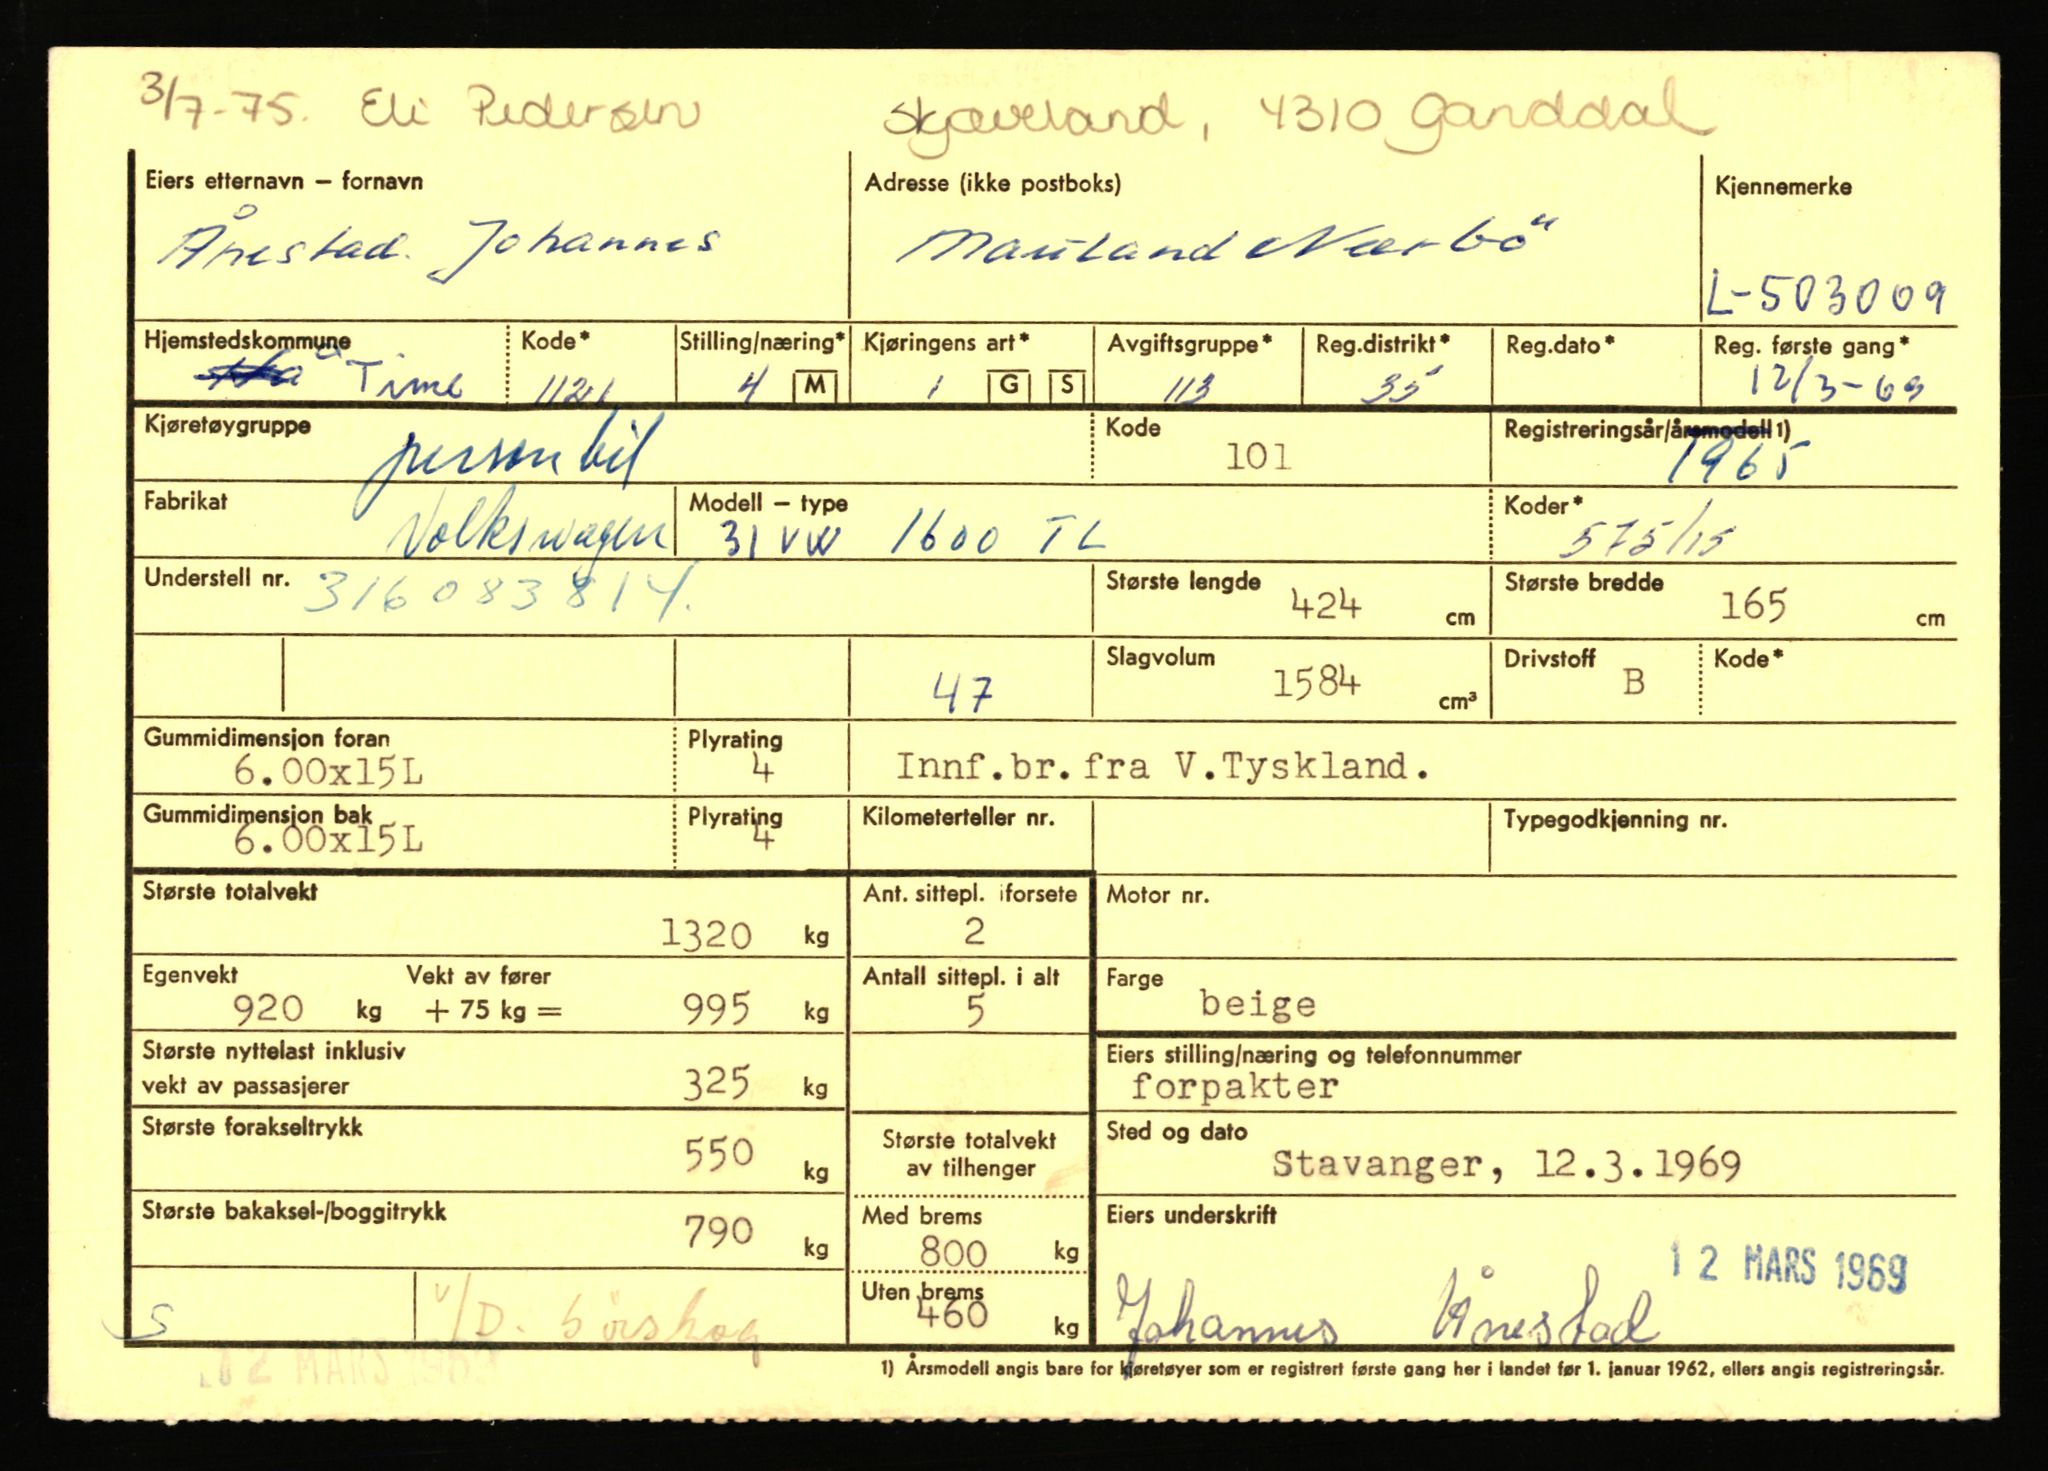 3/7-75. Eli Pedersen Skjæveland, 4310 Ganddal
Eiers etternavn – fornavn Adresse (ikke postboks) Kjennemerke
Ånestad. Johannes Mauland Nærbö L-503009
Hjemstedskommune Kode* Stilling/næring* Kjøringens art* Avgiftsgruppe* Reg.distrikt* Reg.dato* Reg. første gang*
Time 1121 4 M 1 G S 113 35 12/3-69
Kjøretøygruppe Kode Registreringsår/årsmodell 1)
personbil 101 1965
Fabrikat Modell – type Koder*
Volkswagen 31 VW 1600 TL 575/15
Understell nr. 316083814. Største lengde Største bredde
424 cm 165 cm
Slagvolum Drivstoff Kode*
47 1584 cm³ B
Gummidimensjon foran Plyrating
6.00x15L 4 Innf.br.fra V.Tyskland.
Gummidimensjon bak Plyrating Kilometerteller nr. Typegodkjenning nr.
6.00x15L 4
Største totalvekt Ant. sittepl. i forsete Motor nr.
1320 kg 2
Egenvekt Vekt av fører Antall sittepl. i alt Farge
920 kg + 75 kg = 995 kg 5 beige
Største nyttelast inklusiv Eiers stilling/næring og telefonnummer
vekt av passasjerer 325 kg forpakter
Største forakseltrykk Største totalvekt Sted og dato
550 kg av tilhenger Stavanger, 12.3.1969
Største bakaksel-/boggitrykk Med brems Eiers underskrift
790 kg 800 kg 12 MARS 1969
Uten brems
S v/D. børskog 460 kg Johannes Ånestad
12 MARS 1969
1) Årsmodell angis bare for kjøretøyer som er registrert første gang her i landet før 1. januar 1962, ellers angis registreringsår.